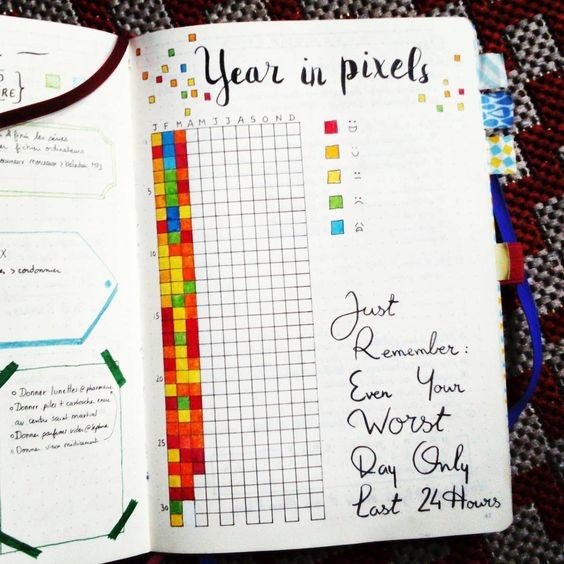 RE}
les séries
fichier ordinateurs
MP3
X
> cordonnier
o Donner lunettes @ pharmacie
o Donner piles + cartouche encre
au centre saint martial
o Donner parfums vides @
o Donner vieux médicament
Year in pixels
J F M A M J J A S O N D
1
5
10
15
20
25
30
:D
:)
:|
:(
Just
Remember:
Even Your
Worst
Day Only
Last 24 Hours